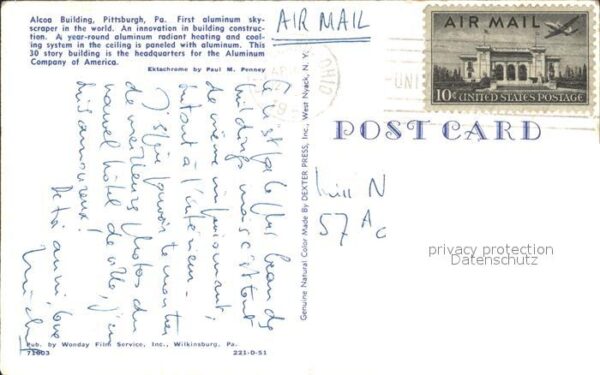 Alcoa Building, Pittsburgh, Pa. First aluminum sky-
scraper in the world. An innovation in building construc-
tion. A year-round aluminum radiant heating and cool-
ing system in the ceiling is paneled with aluminum. This
30 story building is the headquarters for the Aluminum
Company of America.
Ektachrome by Paul M. Penney
AIR MAIL
OHIO
AIR MAIL
10¢ UNITED STATES POSTAGE
POST CARD
Genuine Natural Color Made By DEXTER PRESS, Inc., West Nyack, N. Y.
Ce n'est pas le plus beau de
buildings mais c'est tout
de même impressionnant,
surtout à l'intérieur.
J'espère pouvoir te montrer
de meilleures photos du
nouvel hôtel de ville, j'en
suis amoureux!
Miss N
57 Ac
privacy protection
Datenschutz
Pub. by Wonday Film Service, Inc., Wilkinsburg, Pa.
71603
221-D-51